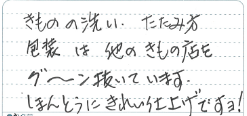 きものの洗い、たたみ方
包装は他のきもの店を
グ〜ン抜いています。
しほんとうにきれい仕上げですョ!